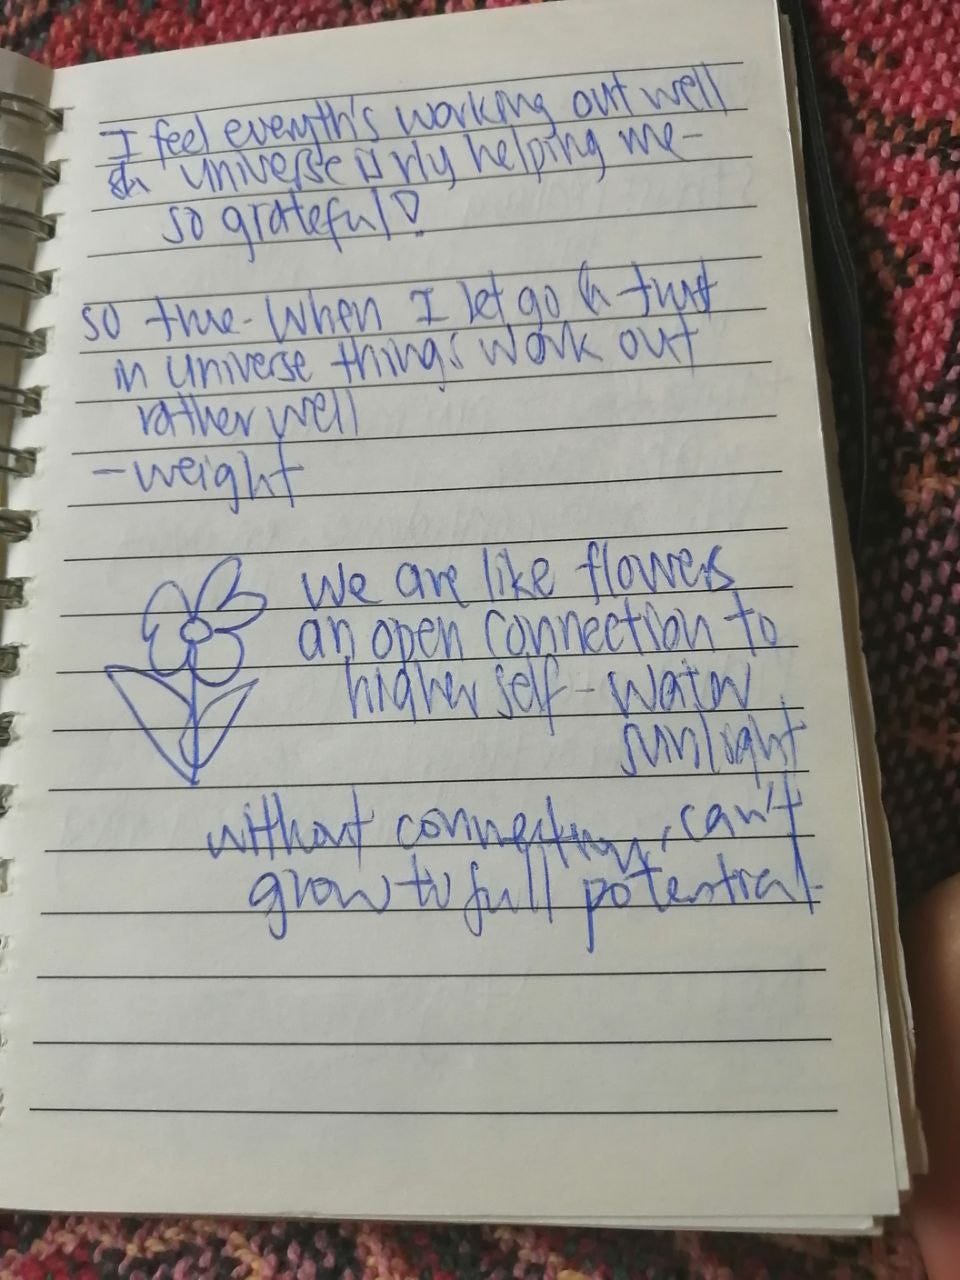 I feel everyth's working out well
& universe is rly helping me-
so grateful!
so true. When I let go & trust
in universe things work out
rather well
- weight
We are like flowers
an open connection to
higher self - water
sunlight
without connection, can't
grow to full potential.